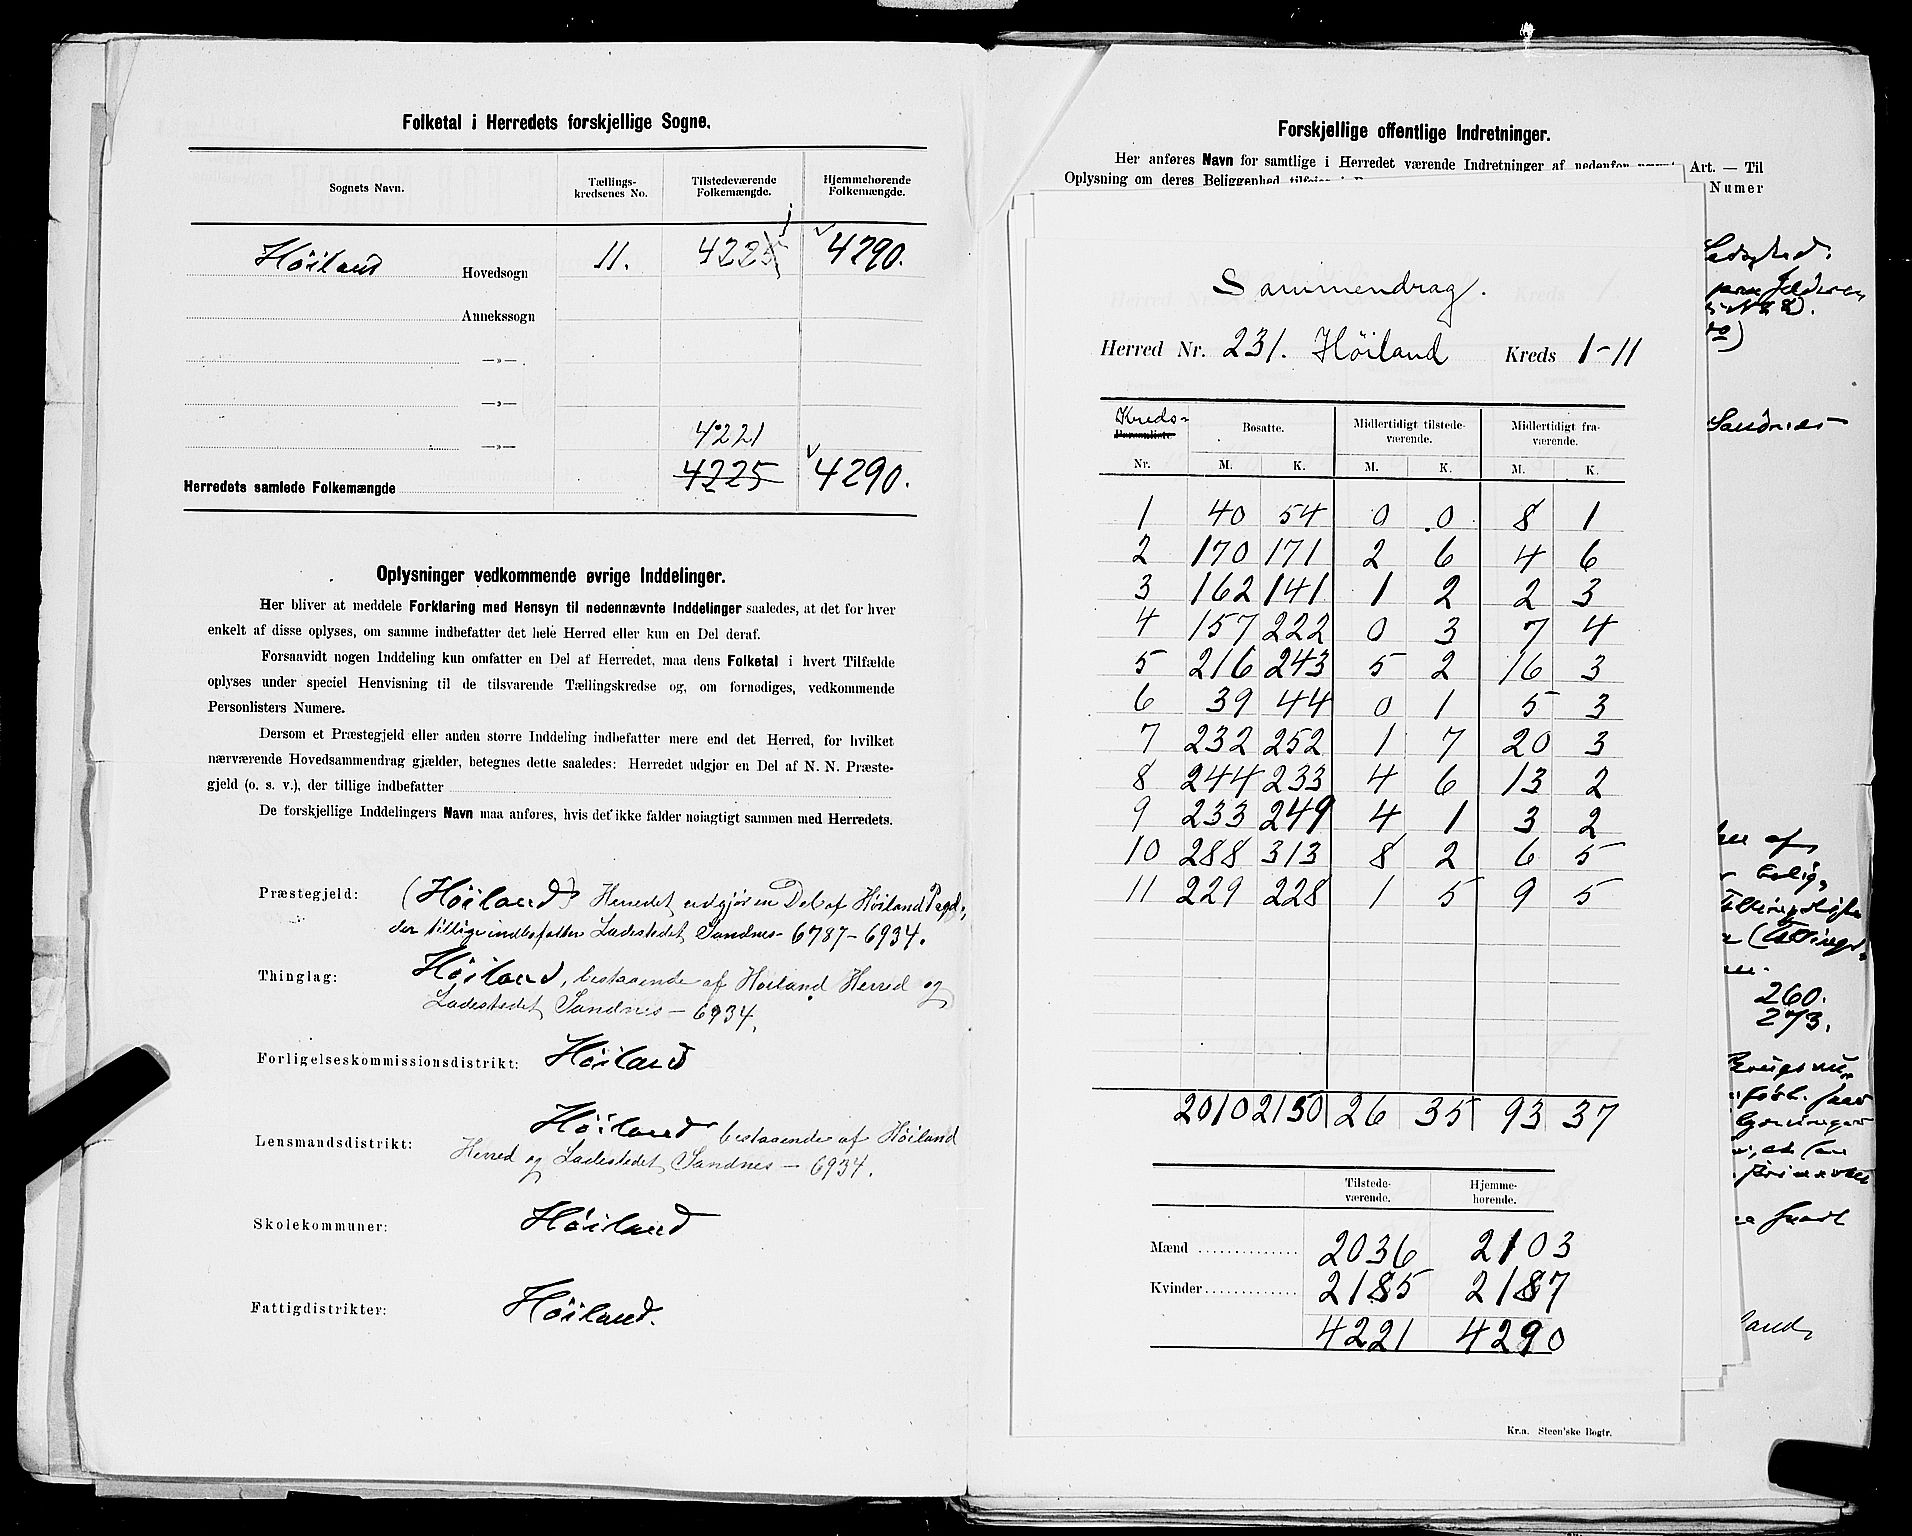 Folketal i Herredets forskjellige Sogne.
Sognets Navn. Tællings-kredsenes No. Tilstedeværende Folkemængde. Hjemmehørende Folkemængde.
Höiland Hovedsogn 11. 4225 1 4290.
Annekssogn
—»—
—»—
4221
—»—
Herredets samlede Folkemængde 4225 4290.
Oplysninger vedkommende øvrige Inddelinger.
Her bliver at meddele Forklaring med Hensyn til nedennævnte Inddelinger saaledes, at det for hver
enkelt af disse oplyses, om samme indbefatter det hele Herred eller kun en Del deraf.
Forsaavidt nogen Inddeling kun omfatter en Del af Herredet, maa dens Folketal i hvert Tilfælde
oplyses under speciel Henvisning til de tilsvarende Tællingskredse og, om fornødiges, vedkommende
Personlisters Numere.
Dersom et Præstegjeld eller anden større Inddeling indbefatter mere end det Herred, for hvilket
nærværende Hovedsammendrag gjælder, betegnes dette saaledes: Herredet udgjør en Del af N. N. Præste-
gjeld (o. s. v.), der tillige indbefatter
De forskjellige Inddelingers Navn maa anføres, hvis det ikke falder nøiagtigt sammen med Herredets.
Præstegjeld: (Höiland) Herredet udgjör en Del af Höiland Pgd.,
der tillige indbefatter Ladestedet Sandnes - 6787 - 6934.
Thinglag: Höiland, bestaaende af Höiland Herred og
Ladestedet Sandnes - 6934.
Forligelseskommissionsdistrikt: Höiland
Lensmandsdistrikt: Höiland bestaaende af Höiland
Herred og Ladestedet Sandnes - 6934.
Skolekommuner: Höiland
Fattigdistrikter: Höiland.
Forskjellige offentlige Indretninger.
Her anføres Navn for samtlige i Herredet værende Indretninger af nedenfor nævnt Art. — Til
Oplysning om deres Beliggenhed tilføies Numer
Sammendrag.
Herred Nr. 231. Höiland Kreds 1-11
Kreds- Personliste Nr. Bosatte. Midlertidigt tilstede-værende. Midlertidigt fra-værende.
M. K. M. K. M. K.
1 40 54 0 0 8 1
2 170 171 2 6 4 6
3 162 141 1 2 2 3
4 157 222 0 3 7 4
5 216 243 5 2 16 3
6 39 44 0 1 5 3
7 232 252 1 7 20 3
8 244 233 4 6 13 2
9 233 249 4 1 3 2
10 288 313 8 2 6 5
11 229 228 1 5 9 5
2010 2150 26 35 93 37
Tilstede-værende. Hjemme-hørende.
Mænd 2036 2103
Kvinder 2185 2187
4221 4290
Kr.a. Steen'ske Bogtr.
Sandnes
260.
273.